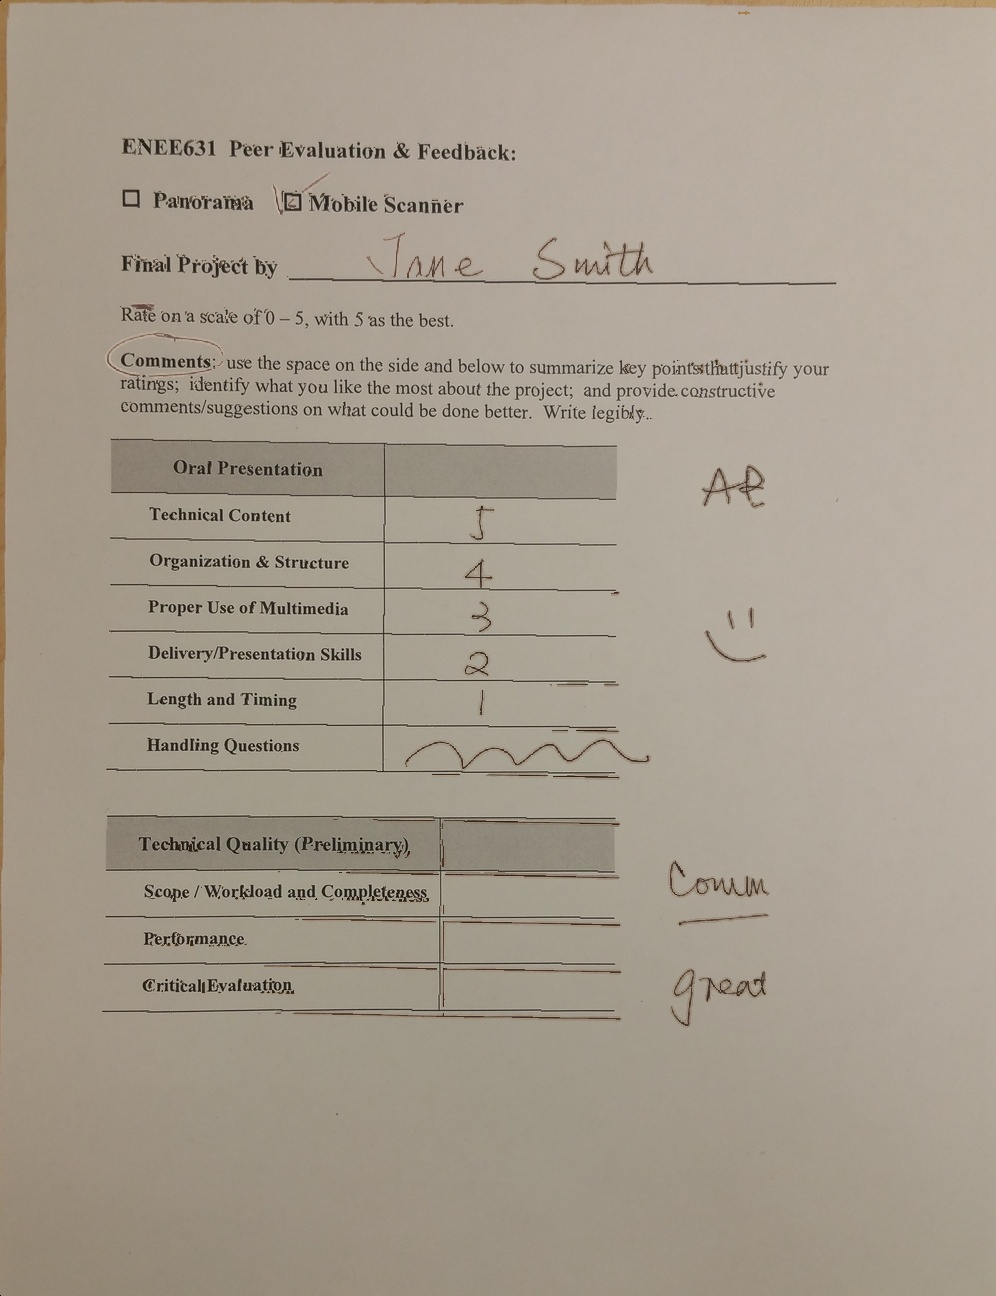 ENEE631 Peer Evaluation & Feedback:
Panorama Mobile Scanner
Final Project by Jane Smith
Rate on a scale of 0 – 5, with 5 as the best.
Comments: use the space on the side and below to summarize key points that justify your
ratings; identify what you like the most about the project; and provide constructive
comments/suggestions on what could be done better. Write legibly.
Oral Presentation
Technical Content 5
Organization & Structure 4
Proper Use of Multimedia 3
Delivery/Presentation Skills 2
Length and Timing 1
Handling Questions
Technical Quality (Preliminary)
Scope / Workload and Completeness
Comm
Performance
Critical Evaluation
great